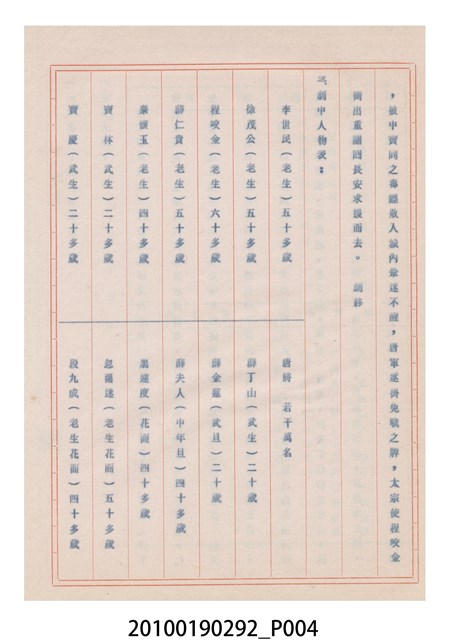 ，被中寶同之毒鏢敗入城內昏迷不醒，唐軍遂掛免戰之牌，太宗使程咬金
衝出重圍回長安求援而去。 劇終
弍劇中人物表：
李世民（老生）五十多歲
徐茂公（老生）五十多歲
程咬金（老生）六十多歲
薛仁貴（老生）五十多歲
秦懷玉（老生）四十多歲
竇 林（武生）二十多歲
竇 慶（武生）二十多歲
唐將 若干萬名
薛丁山（武生）二十歲
薛金蓮（武旦）二十歲
薛夫人（中年旦）四十多歲
黑連度（花面）四十多歲
忽爾迷（老生花面）五十多歲
段九成（老生花面）四十多歲
20100190292_P004